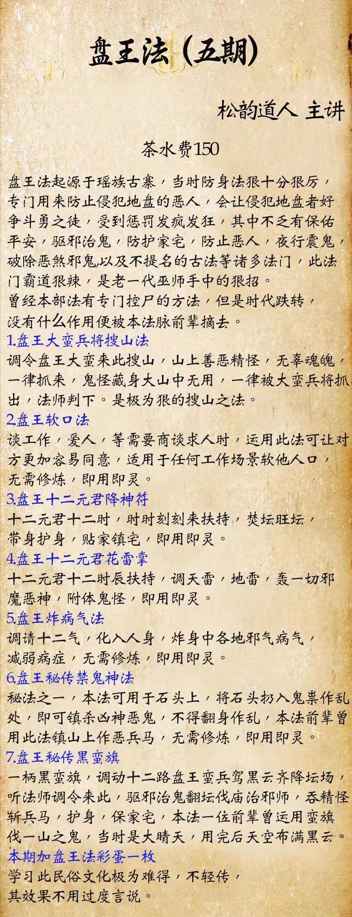 盘王法（五期）
松韵道人 主讲
茶水费150
盘王法起源于瑶族古寨，当时防身法狠十分狠厉，
专门用来防止侵犯地盘的恶人，会让侵犯地盘者好
争斗勇之徒，受到惩罚发疯发狂，其中不乏有保佑
平安，驱邪治鬼，防护家宅，防止恶人，夜行震鬼，
破除恶煞邪鬼以及不提名的古法等诸多法门，此法
门霸道狠辣，是老一代巫师手中的狠招。
曾经本部法有专门控尸的方法，但是时代跌转，
没有什么作用便被本法脉前辈摘去。
1.盘王大蛮兵将搜山法
调令盘王大蛮来此搜山，山上善恶精怪，无辜魂魄，
一律抓来，鬼怪藏身大山中无用，一律被大蛮兵将抓
出，法师判下。是极为狠的搜山之法。
2.盘王软口法
谈工作，爱人，等需要商谈求人时，运用此法可让对
方更加容易同意，适用于任何工作场景软他人口，
无需修炼，即用即灵。
3.盘王十二元君降神符
十二元君十二时，时时刻刻来扶持，焚坛旺坛，
带身护身，贴家镇宅，即用即灵。
4.盘王十二元君花雷掌
十二元君十二时辰扶持，调天雷，地雷，轰一切邪
魔恶神，附体鬼怪，即用即灵。
5.盘王炸病气法
调请十二气，化入人身，炸身中各地邪气病气，
减弱病症，无需修炼，即用即灵。
6.盘王秘传禁鬼神法
秘法之一，本法可用于石头上，将石头扔入鬼祟作乱
处，即可镇杀凶神恶鬼，不得翻身作乱，本法前辈曾
用此法镇山上作恶兵马，无需修炼，即用即灵。
7.盘王秘传黑蛮旗
一柄黑蛮旗，调动十二路盘王蛮兵驾黑云齐降坛场，
听法师调令来此，驱邪治鬼翻坛伐庙治邪师，吞精怪
斩兵马，护身，保家宅，本法一位前辈曾运用蛮旗
伐一山之鬼，当时是大晴天，用完后天空布满黑云。
本期加盘王法彩蛋一枚
学习此民俗文化极为难得，不轻传，
其效果不用过度言说。